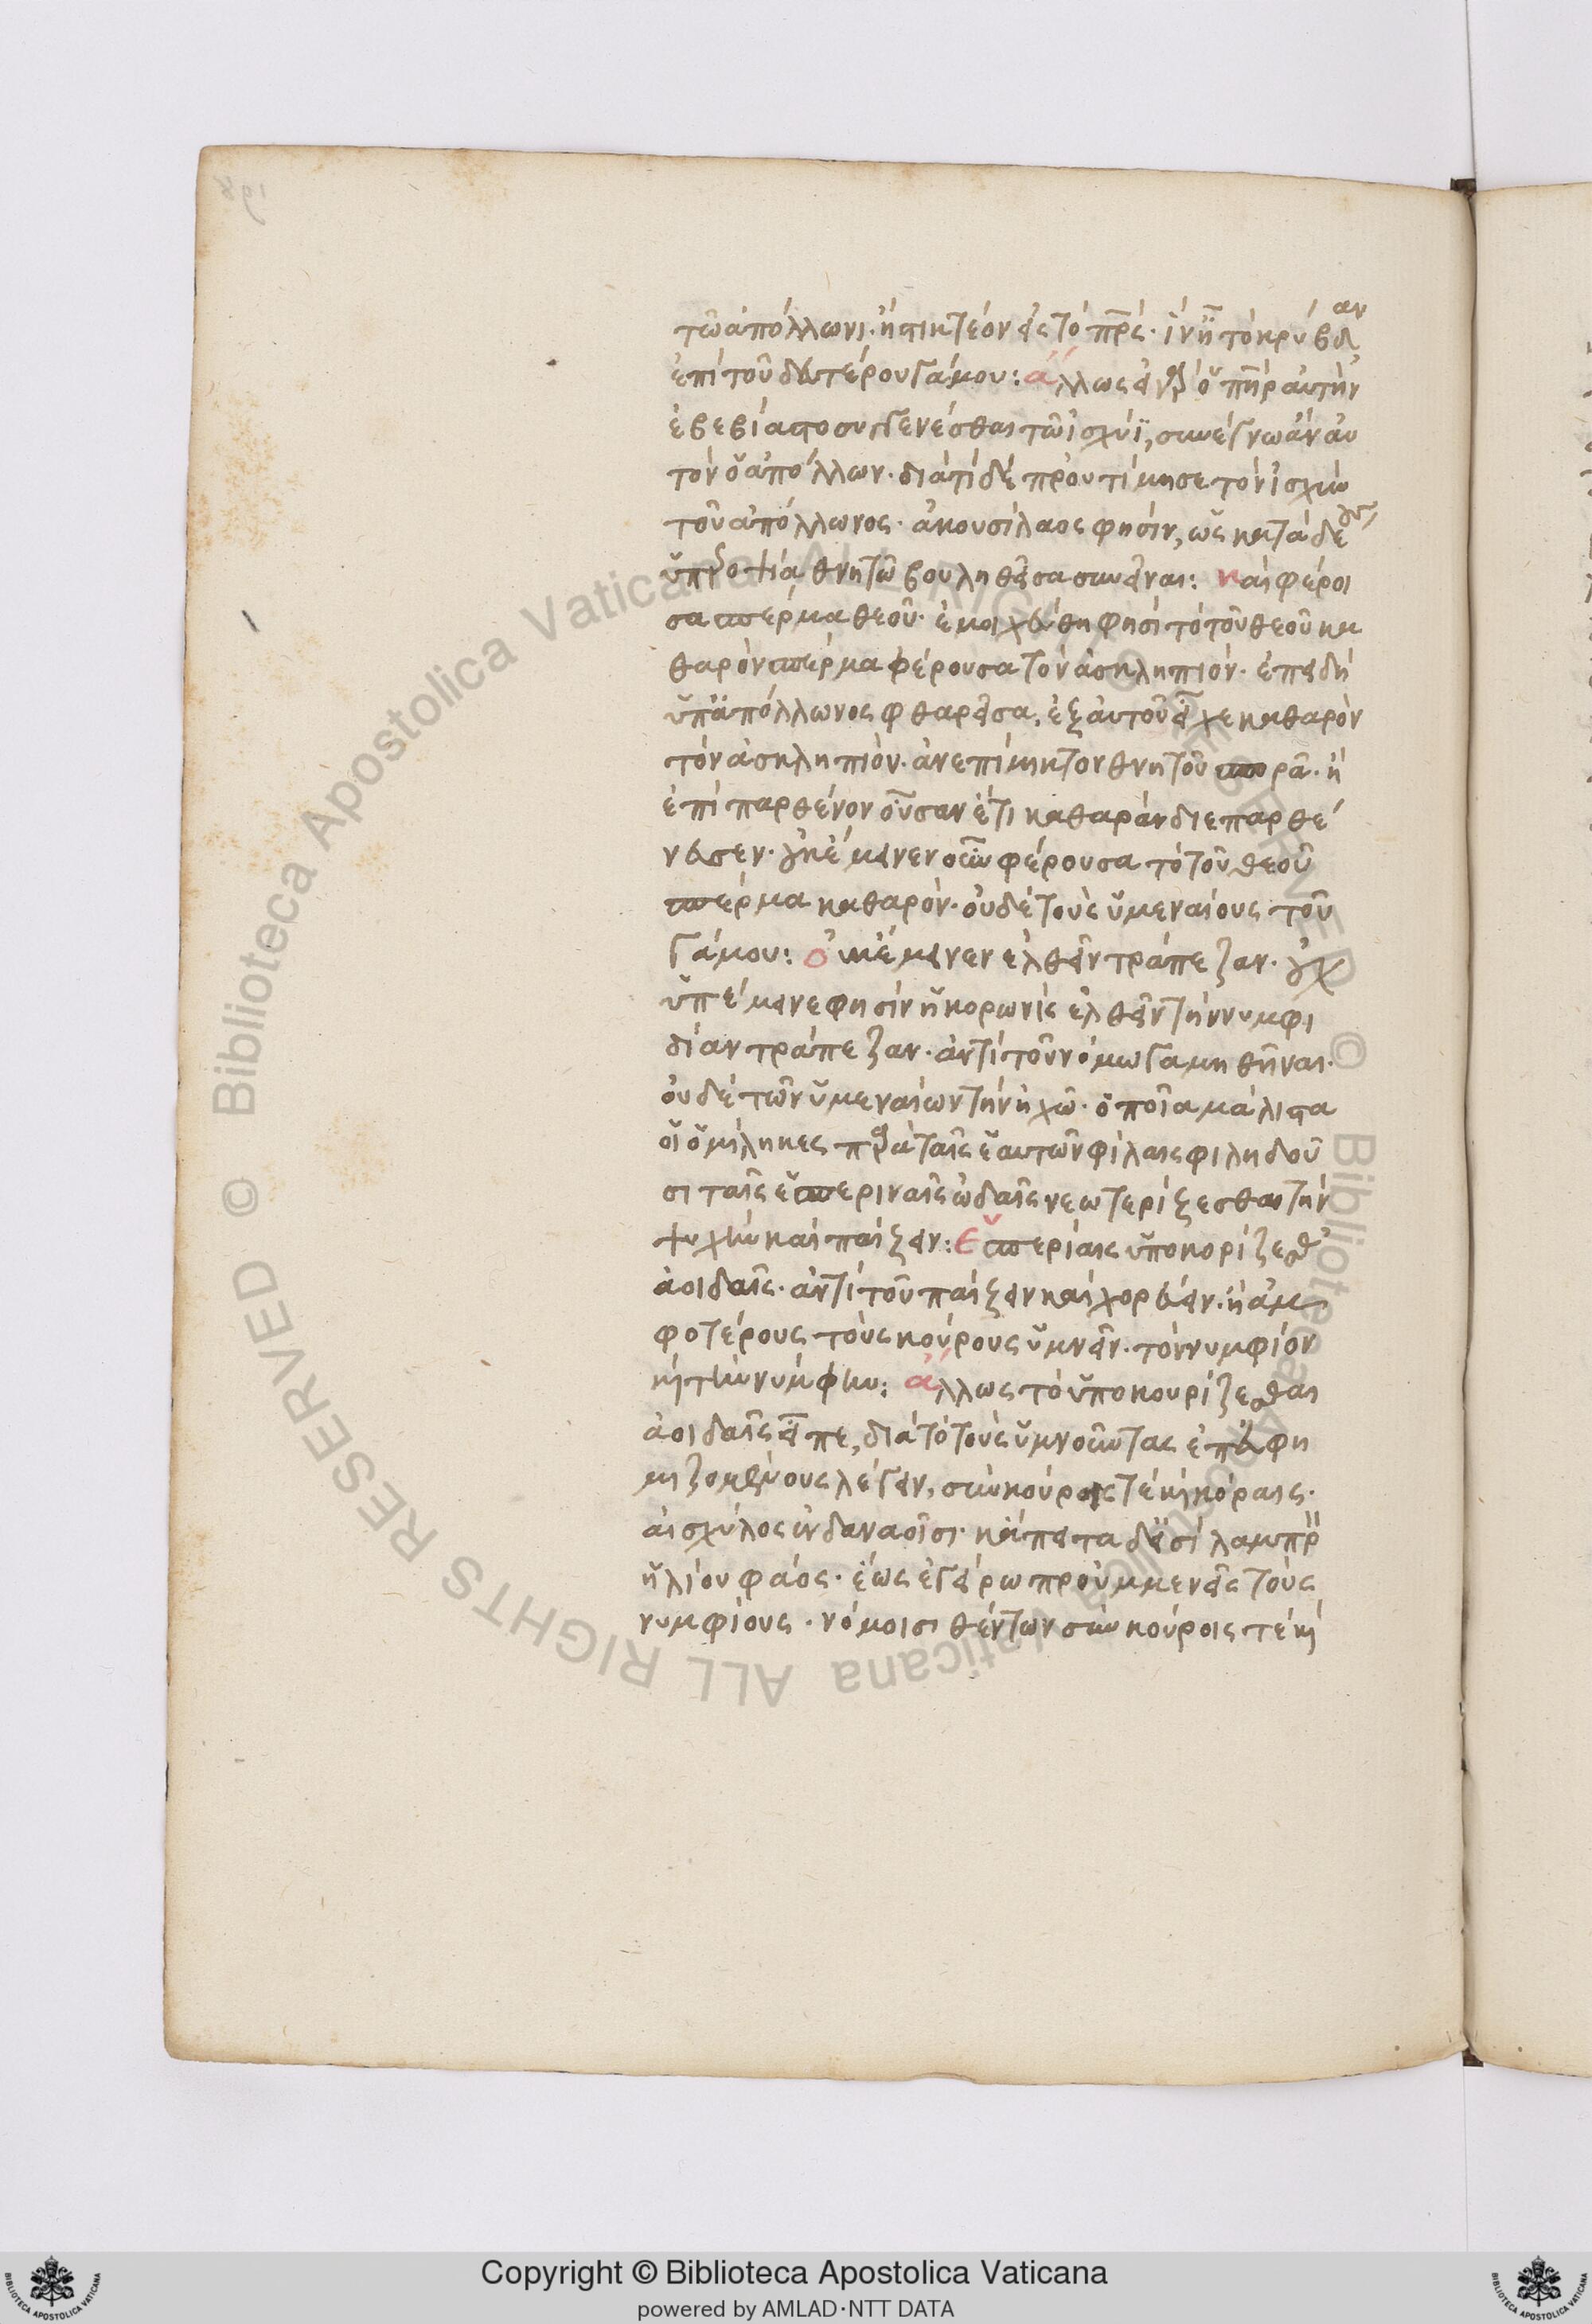 τῶ ἀπόλλωνι· ἢ στικτέον εἰς τὸ πρς· ἵν ἦ τὸ κρύβδαν
ἐπὶ τοῦ δευτέρου γάμου: ἄλλως εἰ γὰρ ὁ πηρ αὐτὴν
ἐβεβίαστο συγγενέσθαι τῶ ἴσχυϊ, συνέγνω ἂν αὐ
τὸν ὁ ἀπόλλων· διατί δὲ προυτίμησε τὸν ἴσχυν
τοῦ ἀπόλλωνος· ἀκουσίλαος φησὶν, ὡς κατὰ δέ
ὑπεροψίας θνητῶ βουληθεῖσα συνεῖναι: καὶ φέροι
σα σπέρμα θεοῦ· ἐμοιχεύθη φησὶ τὸ τοῦ θεοῦ κα
θαρὸν σπέρμα φέρουσα τὸν ἀσκληπιόν· ἐπειδὴ
ὑπὰπόλλωνος φθαρεῖσα, ἐξ αὐτοῦ εἶχε καθαρὸν
τὸν ἀσκληπιὸν· ἀνεπίμικτον θνητοῦ σπορᾶ· ἢ
ἐπὶ παρθένον οὖσαν ἔτι καθαρὰν διεπαρθέ
νευσεν· οὐκ ἔμεινεν οὖν φέρουσα τὸ τοῦ θεοῦ
σπέρμα καθαρόν· οὐδὲ τοὺς ὑμεναίους τοῦ
γάμου: οὐκ ἔμεινεν ἐλθεῖν τράπεζαν· οὐχ
ὑπέμεινε φησὶν ἡ κορωνὶς ἐλθεῖν τὴν νυμφι
δίαν τράπεζαν· ἀντὶ τοῦ νόμω γαμηθῆναι·
οὐδὲ τῶν ὑμεναίων τὴν ἠχῶ· ὁποῖα μάλιστα
οἱ ὁμήλικες παρὰ ταῖς ἑαυτῶν φίλαις φιληδοῦ
σι ταῖς ἑσπεριναῖς ὠδαῖς νεωτερίζεσθαι τὴν
ψυχὴν καὶ παίζειν: ἑσπερίαις ὑποκορίζεσθ
ἀοιδαῖς· ἀντὶ τοῦ παίζειν καὶ χορεύειν· ἢ ἀμ
φοτέρους τοὺς κούρους ὑμνεῖν· τὸν νυμφίον
κὶ τὴν νύμφην: ἄλλως τὸ ὑποκουρίζεσθαι
ἀοιδαῖς εἶπε, διὰ τὸ τοὺς ὑμνοῦντας ἐπευφη
μιζομένους λέγειν, σὺν κούροις τὲ κὶ κόραις·
αἰσχύλος ἐν δαναοῖσι· κἄπειτα δεῖσι λαμπρ
ἡλίου φάος· ἕως ἐγείρω προυμμενεῖς τοὺς
νυμφίους· νόμοισι θέντων σὺν κούροις τὲ κὶ
© Biblioteca Apostolica Vaticana ALL RIGHTS RESERVED
Copyright © Biblioteca Apostolica Vaticana
powered by AMLAD·NTT DATA